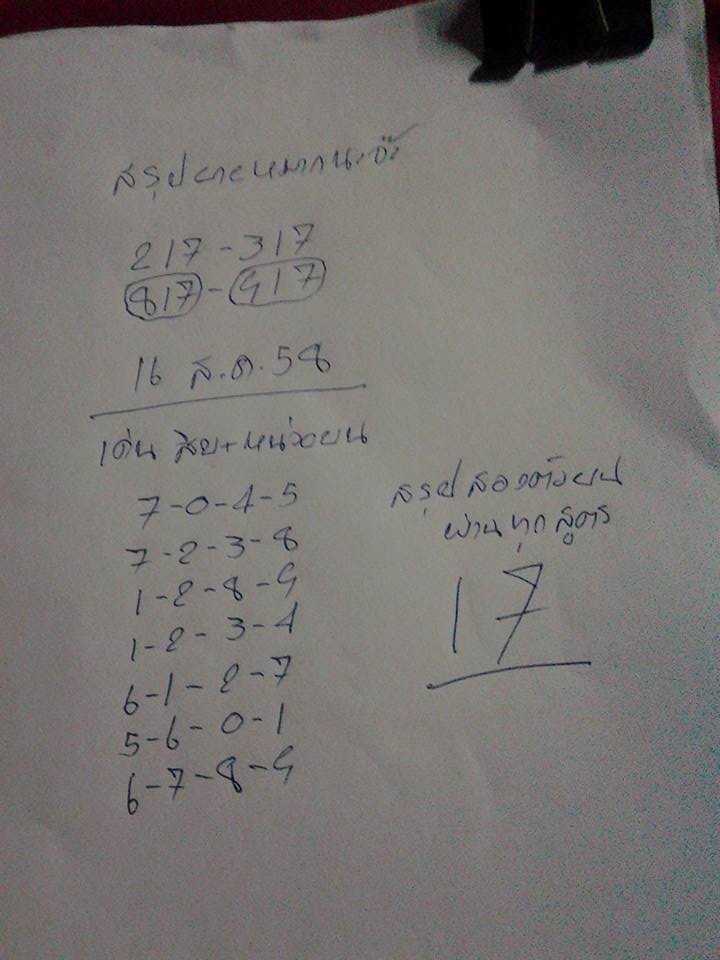 217-317
817-917
16 ส.ค.58
เด่น สิบ+หน่วยบน
7-0-4-5
7-2-3-8
1-2-8-9
1-2-3-4
6-1-2-7
5-6-0-1
6-7-8-9
สรุปสองตัวบน
ผ่านทุกสูตร
17